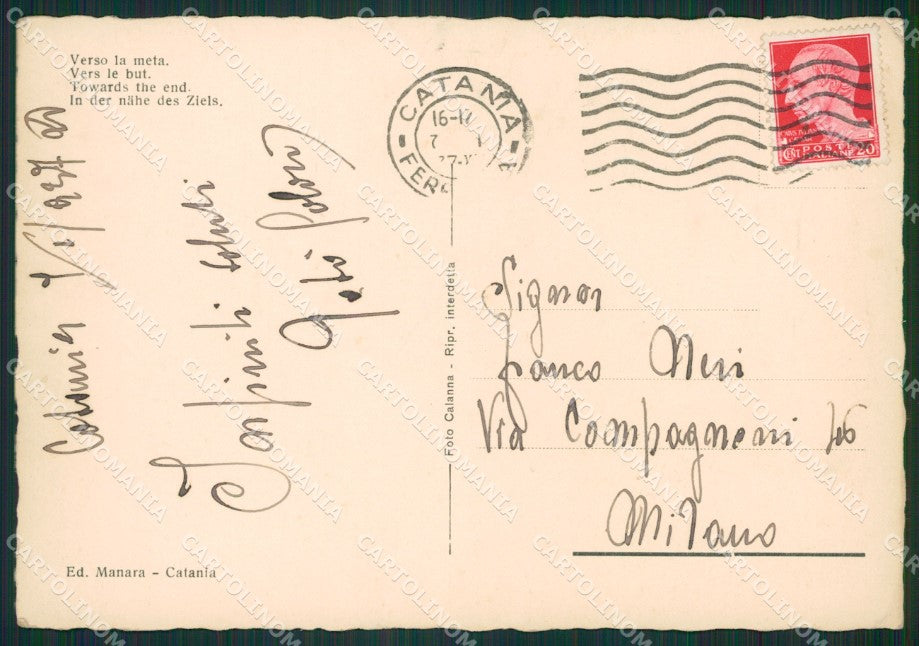 Verso la meta.
Vers le but.
Towards the end.
In der nähe des Ziels.
CATANIA
16-17
7
37-X
FER
POST
CENT
20
Catania
1937
Infiniti saluti
Foto Calanna - Ripr. interdetta
Signor
Franco Neri
Via Compagnoni 46
Milano
Ed. Manara - Catania
CARTOLINOMANIA